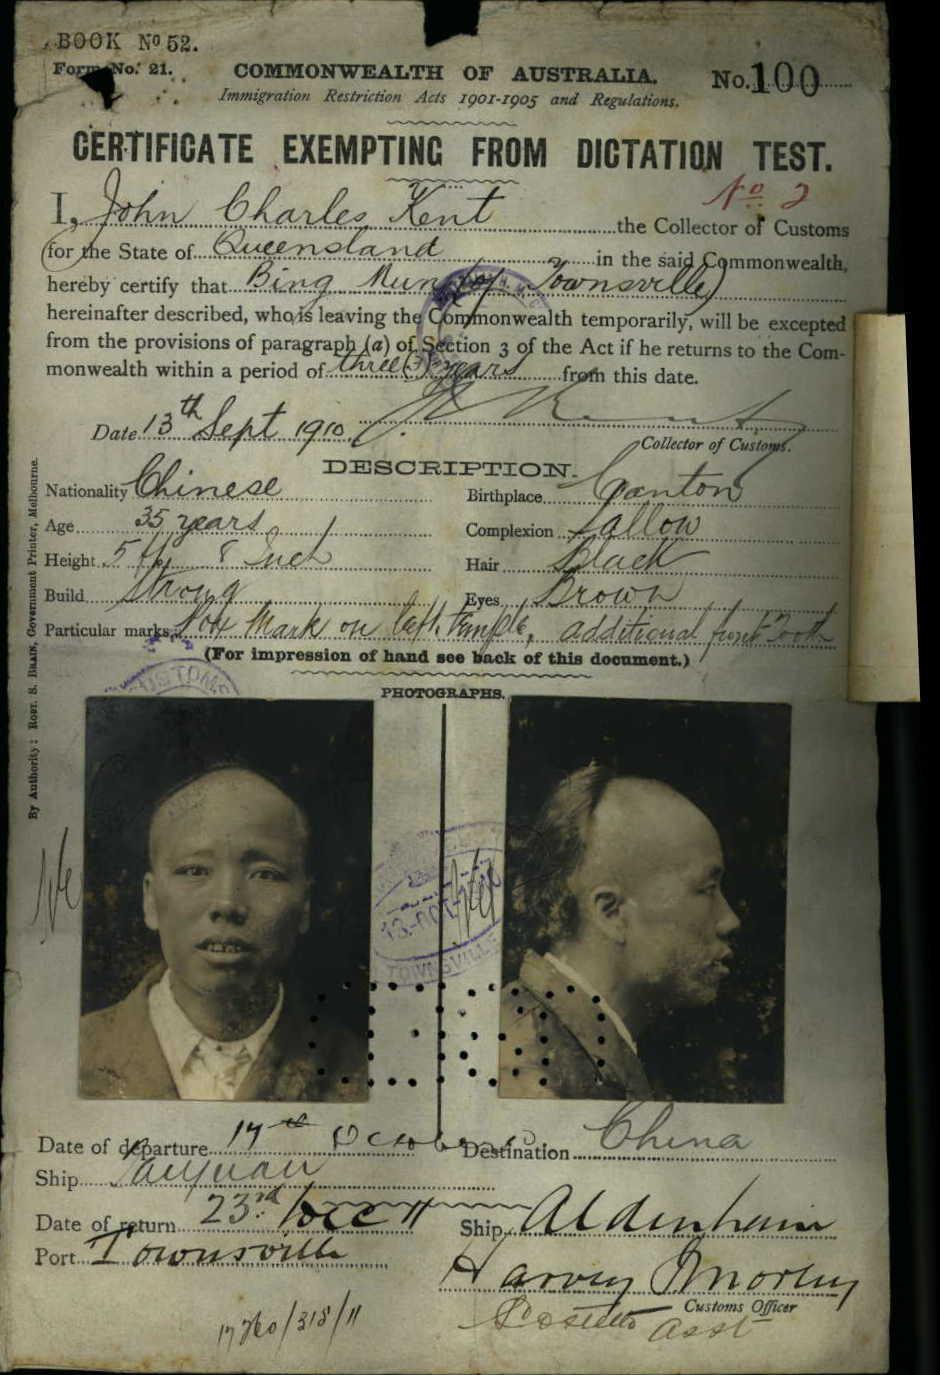 BOOK No 52.
Form No. 21.
COMMONWEALTH OF AUSTRALIA.
No. 100
Immigration Restriction Acts 1901-1905 and Regulations.
CERTIFICATE EXEMPTING FROM DICTATION TEST.
No 2
I, John Charles Kent the Collector of Customs
for the State of Queensland in the said Commonwealth,
hereby certify that Bing Mun (of Townsville)
hereinafter described, who is leaving the Commonwealth temporarily, will be excepted
from the provisions of paragraph (a) of Section 3 of the Act if he returns to the Com-
monwealth within a period of three (3) years from this date.
Date 13th Sept 1910
Collector of Customs.
DESCRIPTION.
Nationality Chinese
Birthplace Canton
Age 35 years
Complexion Sallow
Height 5 ft 8 Inch
Hair Black
Build Strong
Eyes Brown
Particular marks Pox Mark on left temple, additional front Tooth
(For impression of hand see back of this document.)
PHOTOGRAPHS.
CUSTOMS
13-OCT
TOWNSVILLE
By Authority: ROBT. S. BRAIN, Government Printer, Melbourne.
Date of departure 17th October
Destination China
Ship Taiyuan
Date of return 23rd Dec 11
Ship Aldenham
Port Townsville
Harvey
Customs Officer
Asst
17760/318/11